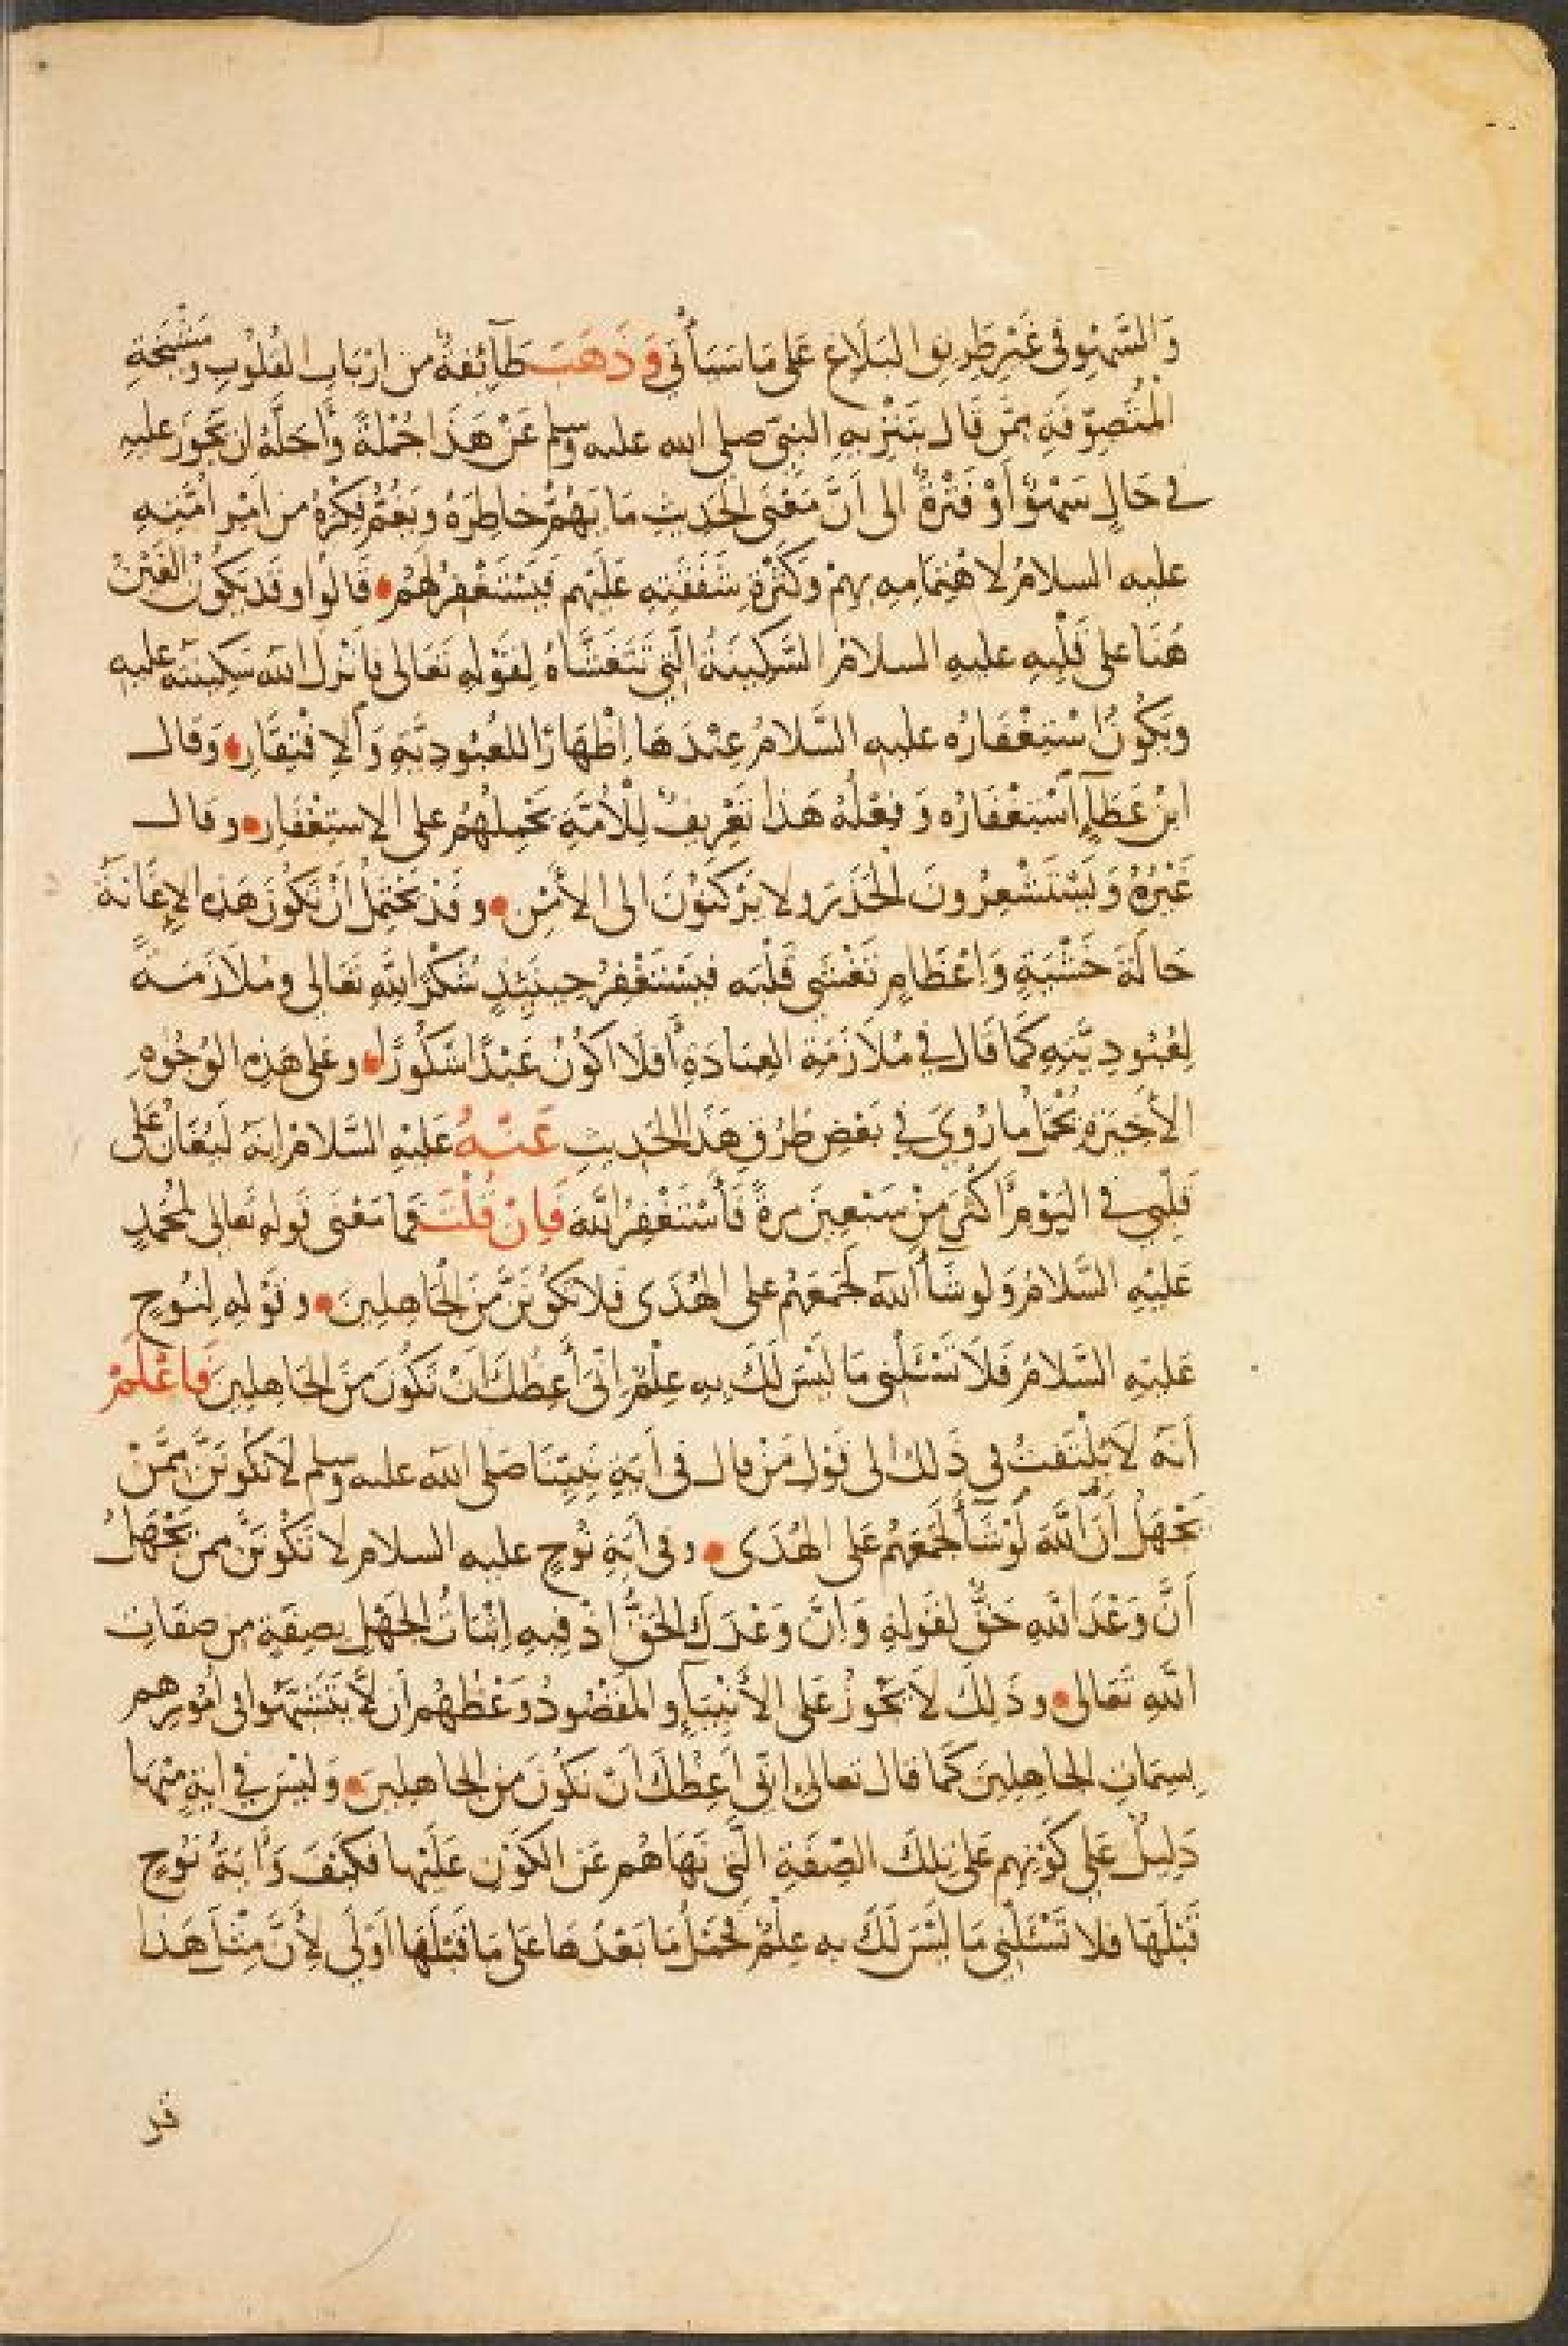 وَالسَّهْوِ فى غَيْرِ طَرِيقِ البَلَاغِ عَلى مَا سَيَأْتى وَذَهَبَ طَآئِفةٌ من ارْبَابِ القُلُوبِ وَمَشْيَخَةِ
المُتَصَوِّفَةِ مِمَّنْ قَالَ بِتَنْزِيهِ النبىّ صلى الله عليه وسلم عَنْ هَذَا جُمْلَةً وَأَجَلَّهُ ان يَجُوزَ عليهِ
فى حَالٍ سَهْوٌ أَوْ فَتْرَةٌ الى اَنَّ مَعْنَى الحَدِيثِ مَا يَهُمُّ خاطِرَهُ ويَغُمُّ فِكْرَهُ من اَمْرِ اُمَّتِهِ
عليه السلامُ لاهْتِمَامِهِ بهمْ وَكَثْرَةِ شَفَقَتِهِ عَلَيْهِم فَيَسْتَغْفِرُ لهُمْ • قَالوُا وقَد يَكُونُ الغَيْنُ
هُنَا على قَلْبِهِ عليهِ السلامُ السَّكِينَةُ الَّتِى تَتَغَشَّاهُ لِقَوْلِهِ تَعَالى فانْزَلَ اللّه سَكِينَتَهُ عليهِ
ويَكُونُ اسْتِغْفَارُه عليه السَّلامُ عِنْدَهَا اِظْهَارًا للعُبُودِيَّةِ وَالاِفْتِقَارِ • وَقَال
ابْنُ عَطَآءٍ اسْتِغْفَارُه وَفِعْلُهُ هَذا تَعْرِيفٌ لِلْاُمَّةِ يَحْمِلُهُمْ على الاِستِغْفَارِ • وقال
غَيْرُهُ وَيَسْتَشْعِرُونَ الحَذَرَ ولا يَرْكَنوُنَ الى الاَمْنِ • وقَدْ يَحْتَمِلُ أَنْ تَكُونَ هَذِه الاِغَانَة
حَالَةَ خَشْيَةٍ وَاِعْظَامٍ تَغْشَى قَلْبَه فَيَسْتَغْفِرُ حِينَئِذٍ شُكْرًا للّهِ تَعَالى ومُلَازَمَةً
لِعُبُودِيَّتِهِ كَمَا قَالَ فى مُلَازَمَةِ العِبَادَةِ أَفَلَا اَكُونُ عَبْدًا شَكُورًا • وعَلى هَذِهِ الوُجُوهِ
الأَخِيرَةِ يُحْمَلُ مَا رُوِىَ فى بَعْضِ طُرُقِ هَذَا الحَدِيثِ عَنْهُ عَلَيْهِ السَّلامُ اِنهُ لَيُغَانُ عَلى
قَلْبِى فى اليَوْمِ أَكْثَرَ مِنْ سَبْعِينَ مرةً فَأَسْتَغْفِرُ اللَّهَ فَاِنْ قُلْتَ فَمَا مَعْنَى قولِهِ تَعالى لمُحَمّدٍ
عَلَيْهِ السَّلامُ وَلو شَآءَ اللّهُ لَجَمَعَهُمْ على الهُدَى فَلا تَكُونَنَّ مِنَ الجَاهِلِينَ • وقَوْلِهِ لِنُوحٍ
عَلَيْهِ السَّلامُ فَلَا تَسْئَلْنِى مَا لَيْسَ لَكَ بِهِ عِلْمٌ اِنّى أَعِظُكَ اَنْ تَكُونَ مِنَ الجَاهِلِينَ فَاعْلَمْ
اَنّه لَا يُلْتَفَتُ فى ذَلِكَ اِلى قَوْلِ مَنْ قال فى اَيَةِ نَبِيِّنَا صَلى اللّه عليه وسلم لَا تَكُونَنَّ مِمَّنْ
يَجْهَلُ أَنَّ اللَّهَ لَوْ شَآءَ لَجَمَعَهُمْ عَلى الهُدَى • وفى اَيَةِ نُوحٍ عليه السلام لا تَكُونَنَّ ممن يَجْهَلُ
اَنَّ وَعْدَ اللّهِ حَقٌّ لقَولِهِ وَاِنَّ وَعْدَكَ الحَقُّ اذْ فِيهِ اِثْبَاتُ الجَهْلِ بصِفَةٍ مِن صفَاتِ
اللّهِ تَعَالى • وذَلِكَ لَا يَجُوزُ عَلى الأَنْبِيَآءِ والمَقْصُودُ وَعْظُهُم اَن لَّا يَتَشَبَّهُوا فى اُمُورِهِم
بِسِمَاتِ الجَاهِلِينَ كَمَا قال تعالى اِنّى أَعِظُكَ اَنْ تَكُونَ مِنَ الجاهلِينَ • وَلَيْسَ فى ايَةٍ مِنْهَا
دَلِيلٌ عَلى كَوْنِهِم عَلى تِلكَ الصِّفَةِ الَّتى نَهَاهُم عَنِ الكَوْنِ عَلَيْهَا فكَيْفَ وَأَيَةُ نُوحٍ
قَبْلَهَا فلا تَسْئَلْنِى مَا لَيْسَ لَكَ به عِلْمٌ فَحَمْلُ مَا بَعْدَهَا عَلى مَا قَبْلَهَا اَوْلَى لِأَنَّ مِثْلَ هَذا
قد